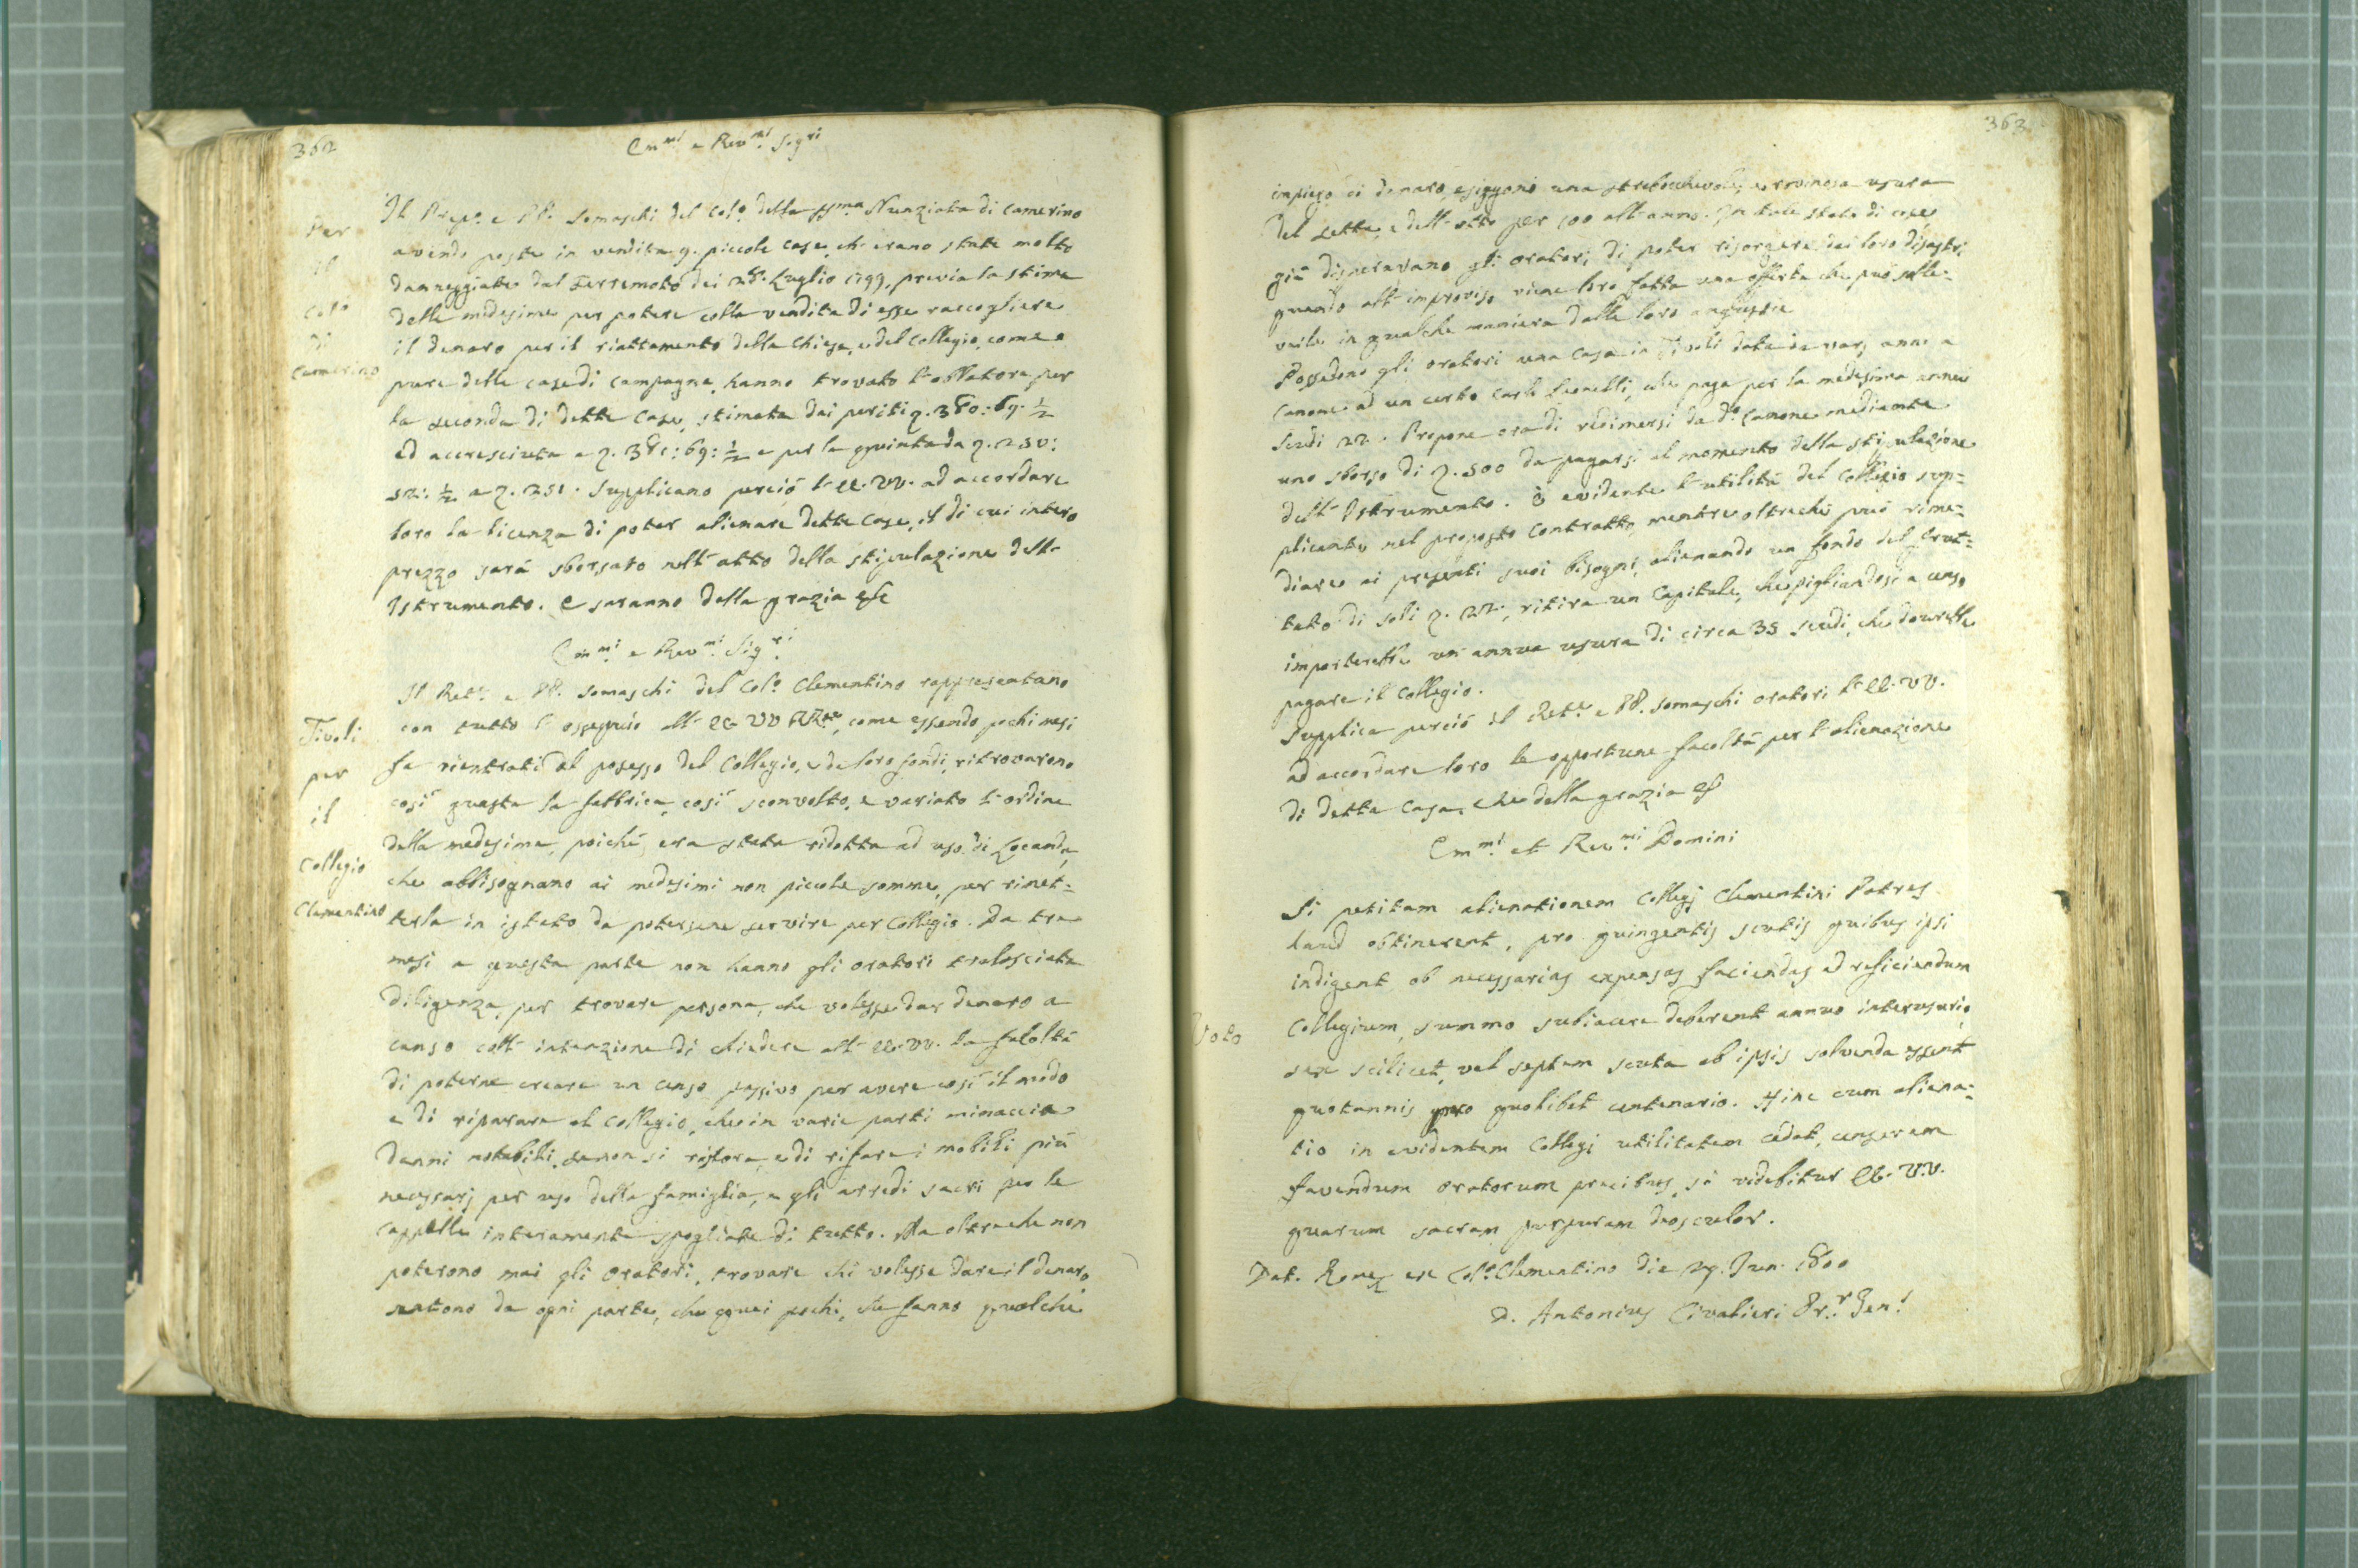 362
Emmi e Revmi Sigri
Per
il
Colo
di
Camerino
Il Prepo e PP. Somaschi del Colo della SSma Nunziata di Camerino
avendo poste in vendita 9. piccole case, ch'erano state molto
danneggiate dal Terremoto dei 28. Luglio 1799, previa la stima
delle medesime per potere colla vendita di esse raccogliere
il denaro per il riattamento della Chiesa, e del Collegio, come
pure delle case di campagna, hanno trovato l'oblatore per
la seconda di dette Case, stimata dai periti 380:69:½
ed accresciuta a 381:69:½ e per la quinta da 250:
52:½ a 251. Supplicano perciò l'EE.VV. ad accordare
loro la licenza di poter alienare dette Case, il di cui intero
prezzo sarà sborsato nell'atto della stipulazione dell'
Istrumento. E saranno della grazia &c
Emmi e Revmi Sigri
Tivoli
per
il
Collegio
Clementino
Il Rete e PP. Somaschi del Colo Clementino rappresentano
con tutto l'ossequio all'EE VV RRme, come essendo pochi mesi
fa rientrati al possesso del Collegio, e de loro fondi, ritrovarono
così guasta la fabbrica, così sconvolto, e variato l'ordine
della medesima, poiché era stata ridotta ad uso di Locanda,
che abbisognano ai medesimi non piccole somme, per rimet=
terla in istato da potersene servire per Collegio. Da tre
mesi a questa parte non hanno gli oratori tralasciata
diligenza, per trovare persona, che volesse dar denaro a
censo coll'intenzione di chiedere all'EE.VV. la facoltà
di poterne creare un censo passivo per avere così il modo
e di riparare al Collegio, che in varie parti minaccia
danni notabili, se non si ristora, e di rifare i mobili più
necessarj per uso della famiglia, e gli arredi sacri per le
cappelle interamente spogliate di tutto. Ma oltreche non
poterono mai gli oratori, trovare chi volesse dare il denaro,
sentono da ogni parte, che quei pochi, che fanno qualche
363
impiego di denaro, esiggono una strabocchevole, e rovinosa usura
del sette, e dell'otto per 100 all'anno. In tale stato di cose
già disperavano gli oratori di poter risorgere dai loro disastri,
quando all'improviso viene loro fatta una offerta che può solle=
varli in qualche maniera dalle loro angustie
Possedono gli oratori una Casa in Tivoli data da varj anni a
Canone ad un certo Carlo Leonelli, che paga per la medesima annui
Scudi 22. Propone ora di redimersi da do Canone mediante
uno sborso di 500 da pagarsi al momento della stipulazione
dell'Istrumento. È evidente l'utilità del Collegio sup=
plicante nel proposto Contratto, mentre oltreché può rime=
diare ai presenti suoi bisogni, alienando un fondo del frut=
tato di soli 22, ritira un Capitale, che pigliandosi a censo
importerebbe un'annua usura di circa 35 scudi, che dovrebbe
pagare il Collegio.
Supplica perciò il Rete e PP. Somaschi oratori l'EE.VV.
ad accordare loro le opportune facoltà per l'alienazione
di detta Casa. Che della grazia &c
Emmi et Revmi Domini
Voto
Si petitam alienationem Collegj Clementini Patres
haud obtinerent, pro quingentis scutis quibus ipsi
indigent ob necessarias expensas faciendas ad reficiendum
Collegium, summo subiacere deberent annuo interusurio,
sex scilicet, vel septem scuta ab ipsis solvenda essent
quotannis pro quolibet centenario. Hinc cum aliena=
tio in evidentem Collegj utilitatem cedat, censerem
favendum oratorum precibus, si videbitur EE.VV.
quarum sacram purpuram deosculor.
Dat. Romæ ex Colo Clementino die 29. Jun. 1800
D. Antonius Civalieri Pr.r Gen.l